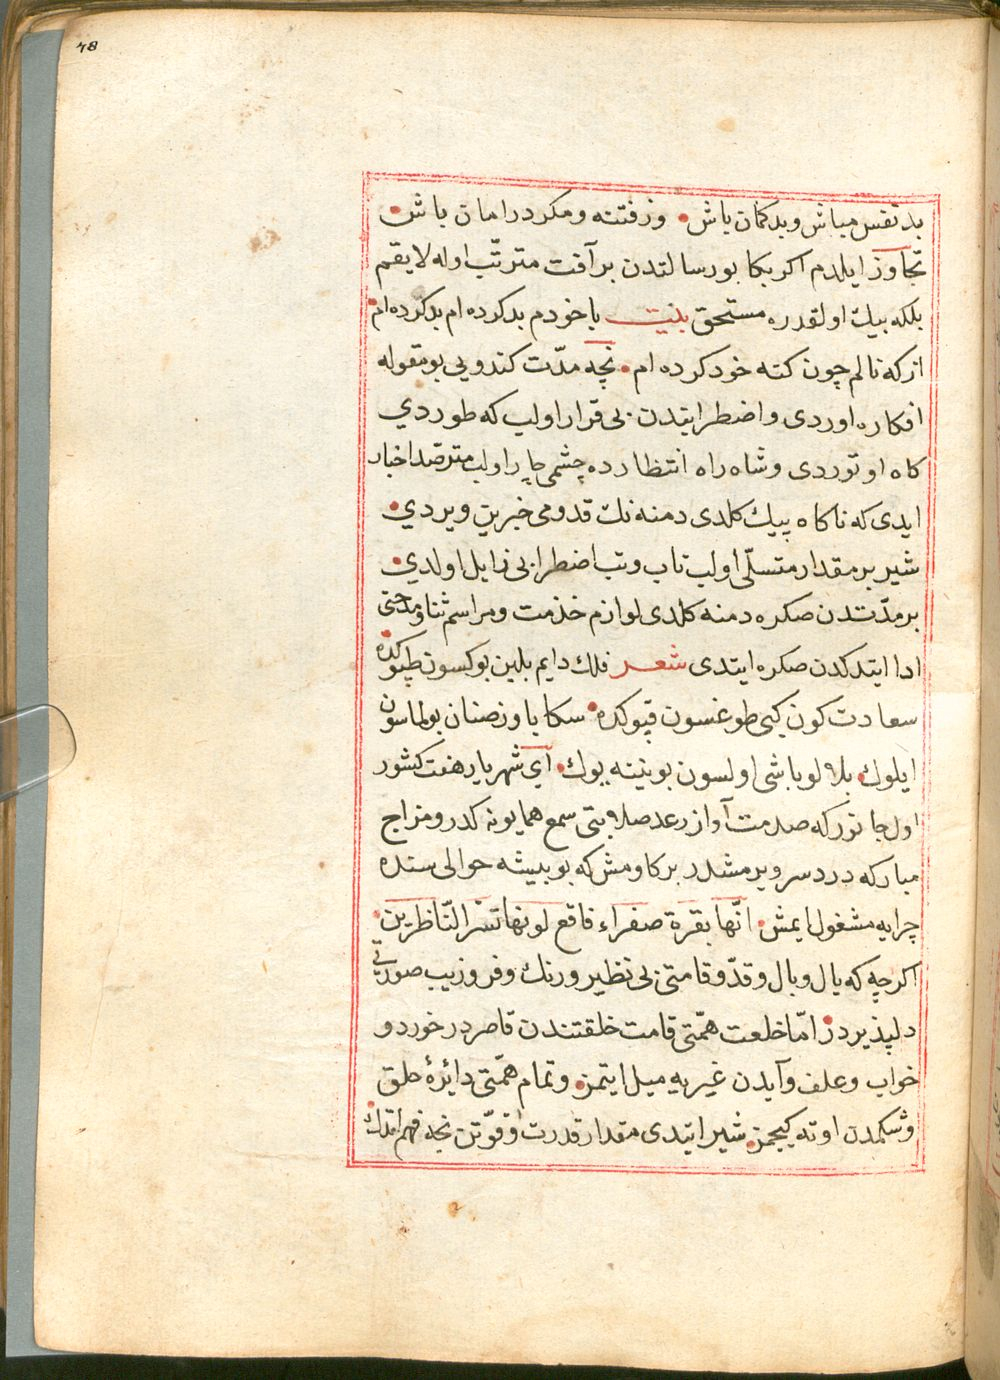 48
بد نفس مباش و بد کمان باش وز فتنه و مکر در امان باش
تجاوز ایلدم اکر بکا بو رسالتدن بر آفت مترتّب اوله لایقم
بلکه بیك اولقدره مستحق بیت با خودم بد کرده ام بد کرده ام
از که نالم چون کنه خود کرده ام نچه مدّت کندویی بو مقوله
افکاره اوردی و اضطرابتدن بی قرار اولب که طوردی
کاه اوتوردی و شاه راه انتظارده چشمی چار اولب مترصّد اخبار
ایدی که ناکاه پیك کلدی دمنه نك قدومی خبرین ویردی
شیر بر مقدار متسلّی اولب تاب و تب اضطرابی زایل اولدی
بر مدّتدن صکره دمنه کلدی لوازم خذمت و مراسم ثنا و مدحتی
ادا ایتدکدن صکره ایتدی شعر فلك دایم بلین بوکسون طپوکده
سعادت کون کبی طوغسون قپوکده سکا یاوز صنان بولماسون
ایلوك بلالو باشی اولسون بوینینه یوك آی شهریار هفت کشور
اول جانور که صدمت آواز رعد صلابتی سمع همایونه کدر و مزاج
مبارکه درد سر ویرمشدر بر کاومش که بو بیشه حوالی سنده
چرایه مشغول ایمش انّها بقرة صفراء فاقع لونها تسرّ النّاظرین
اکرچه که یال و بال و قدّ و قامتی بی نظیر و رنك و فرّ و زیب صورتی
دلپذیردر امّا خلعت همّتی قامت خلقتندن قاصردر خورد و
خواب و علف و آبدن غیریه میل ایتمز و تمام همّتی دائرهٔ حلق
و شکمدن اوته کیچمز شیر ایتدی مقدار قدرت و قوّتن نچه فهم اتدك